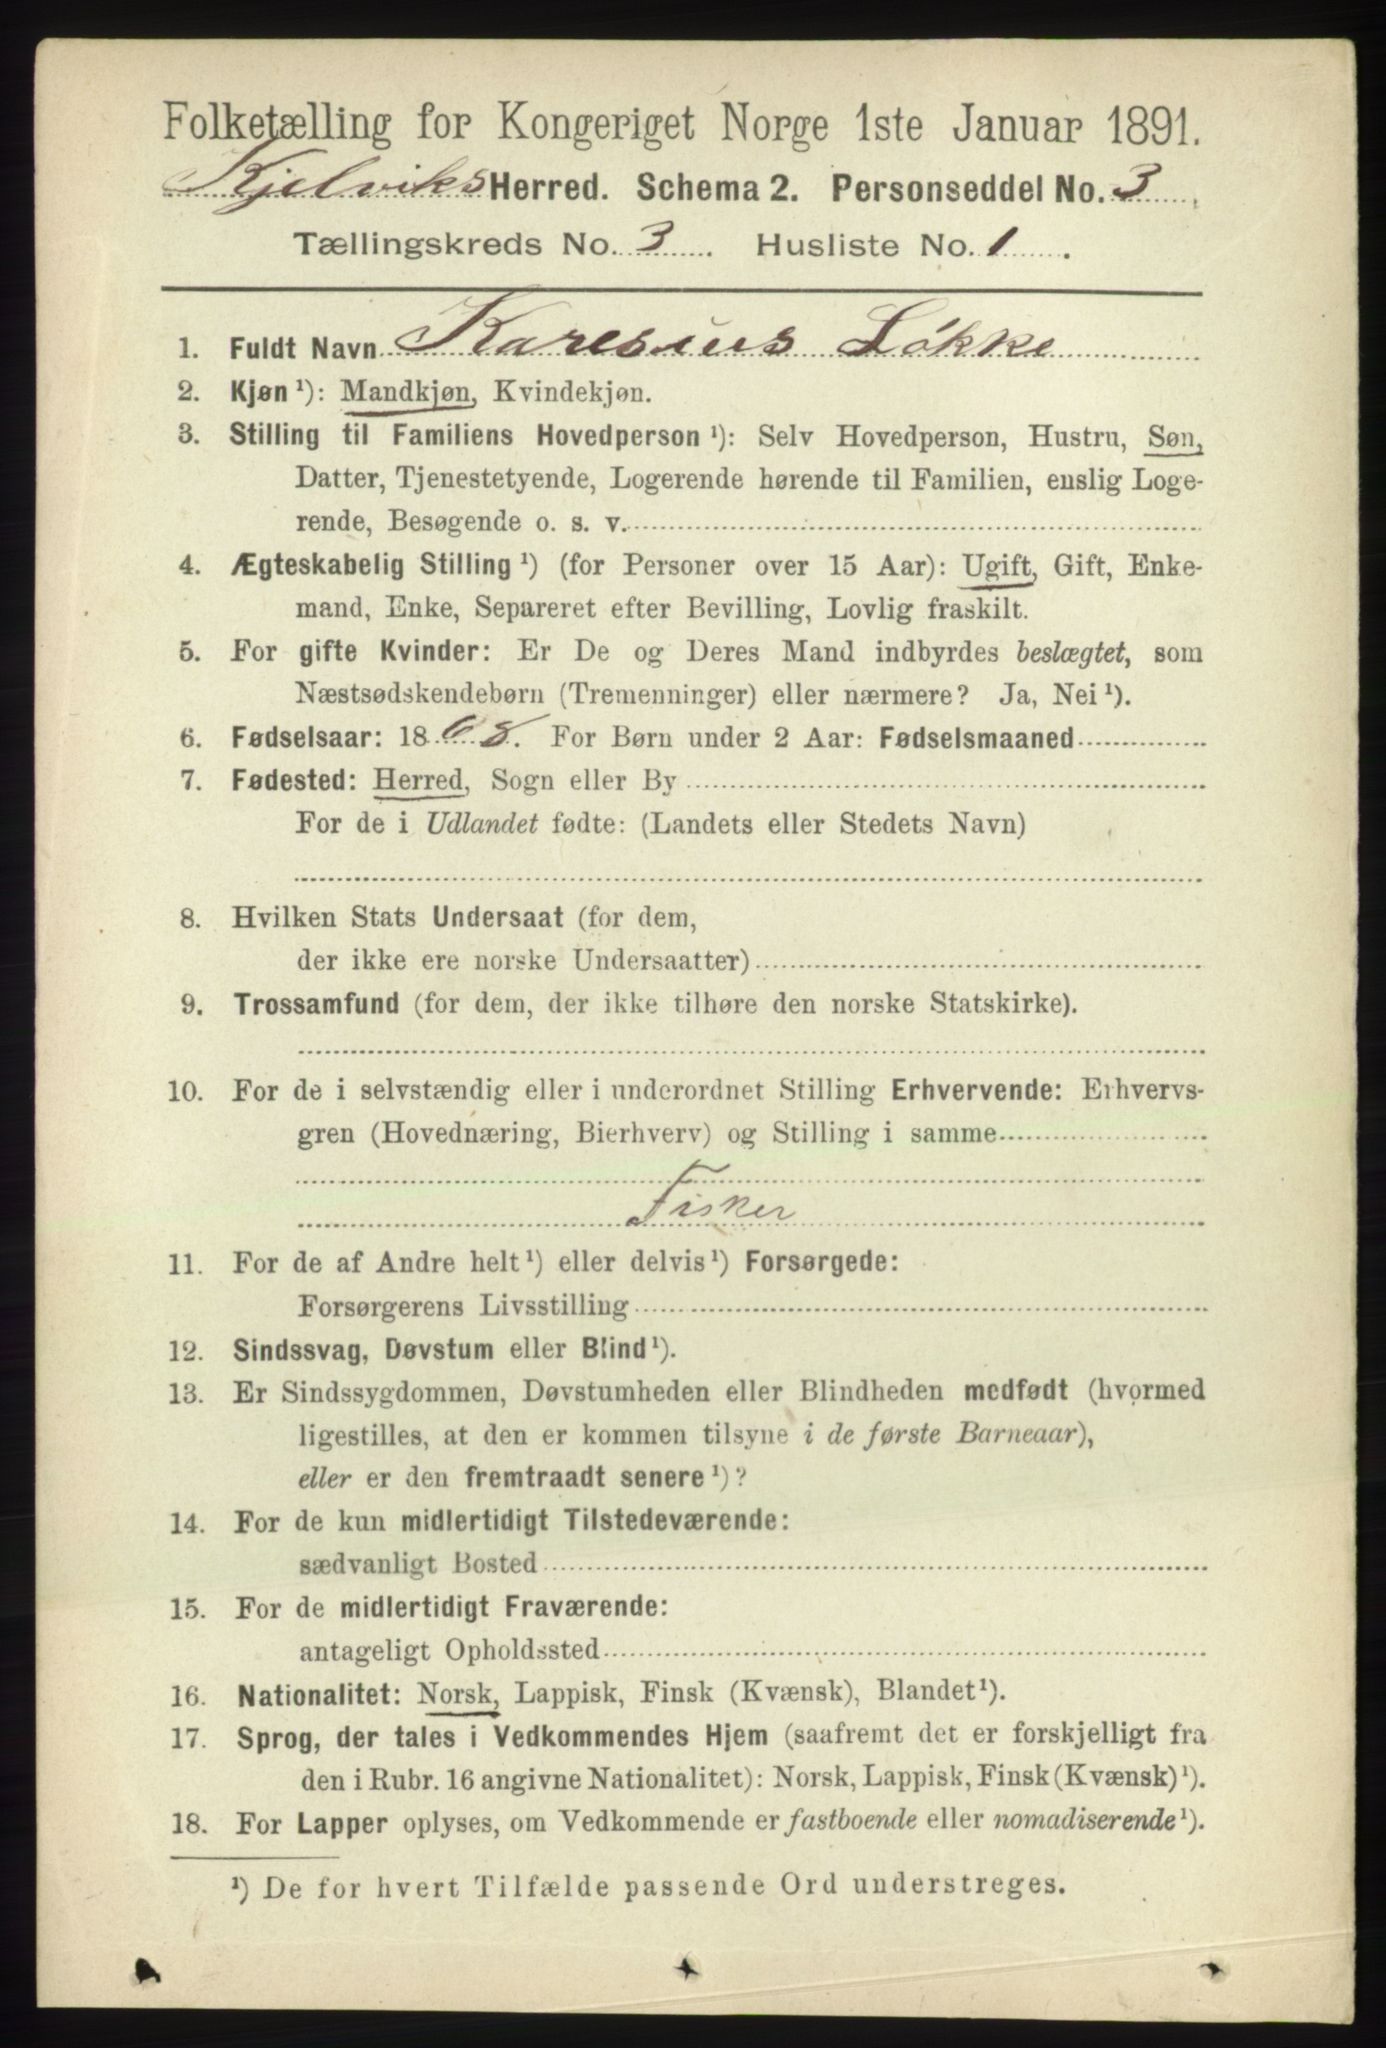 Folketælling for Kongeriget Norge 1ste Januar 1891.
Kjelviks Herred. Schema 2. Personseddel No. 3
Tællingskreds No. 3. Husliste No. 1.
1. Fuldt Navn Karesius Løkke
2. Kjøn ¹): Mandkjøn, Kvindekjøn.
3. Stilling til Familiens Hovedperson ¹): Selv Hovedperson, Hustru, Søn,
Datter, Tjenestetyende, Logerende hørende til Familien, enslig Loge-
rende, Besøgende o. s. v.
4. Ægteskabelig Stilling ¹) (for Personer over 15 Aar): Ugift, Gift, Enke-
mand, Enke, Separeret efter Bevilling, Lovlig fraskilt.
5. For gifte Kvinder: Er De og Deres Mand indbyrdes beslægtet, som
Næstsødskendebørn (Tremenninger) eller nærmere? Ja, Nei ¹).
6. Fødselsaar: 1868. For Børn under 2 Aar: Fødselsmaaned
7. Fødested: Herred, Sogn eller By
For de i Udlandet fødte: (Landets eller Stedets Navn)
8. Hvilken Stats Undersaat (for dem,
der ikke ere norske Undersaatter)
9. Trossamfund (for dem, der ikke tilhøre den norske Statskirke).
10. For de i selvstændig eller i underordnet Stilling Erhvervende: Erhvervs-
gren (Hovednæring, Bierhverv) og Stilling i samme
Fisker
11. For de af Andre helt ¹) eller delvis ¹) Forsørgede:
Forsørgerens Livsstilling
12. Sindssvag, Døvstum eller Blind ¹).
13. Er Sindssygdommen, Døvstumheden eller Blindheden medfødt (hvormed
ligestilles, at den er kommen tilsyne i de første Barneaar),
eller er den fremtraadt senere ¹)?
14. For de kun midlertidigt Tilstedeværende:
sædvanligt Bosted
15. For de midlertidigt Fraværende:
antageligt Opholdssted
16. Nationalitet: Norsk, Lappisk, Finsk (Kvænsk), Blandet ¹).
17. Sprog, der tales i Vedkommendes Hjem (saafremt det er forskjelligt fra
den i Rubr. 16 angivne Nationalitet): Norsk, Lappisk, Finsk (Kvænsk) ¹).
18. For Lapper oplyses, om Vedkommende er fastboende eller nomadiserende ¹).
¹) De for hvert Tilfælde passende Ord understreges.